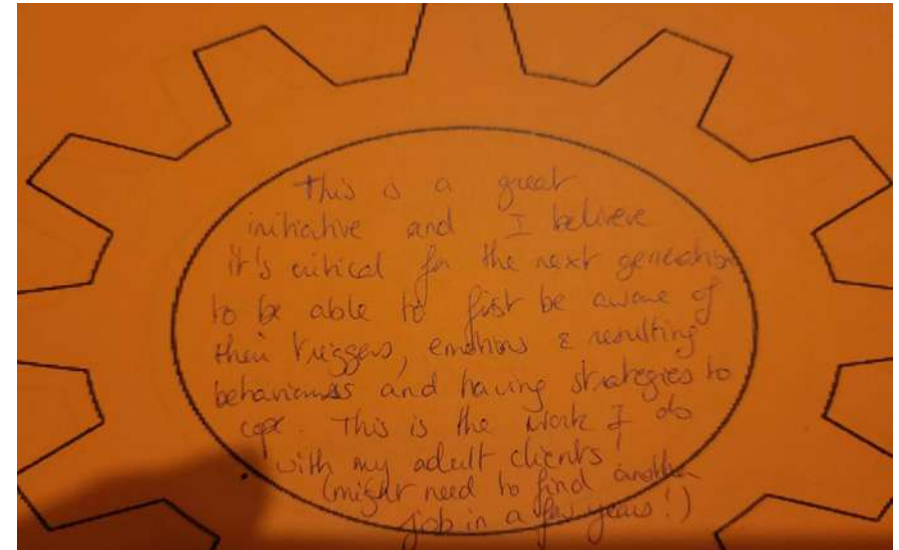 This is a great
initiative and I believe
it's critical for the next generation
to be able to first be aware of
their triggers, emotions & resulting
behaviours and having strategies to
cope. This is the work I do
with my adult clients
(might need to find another
job in a few years!)